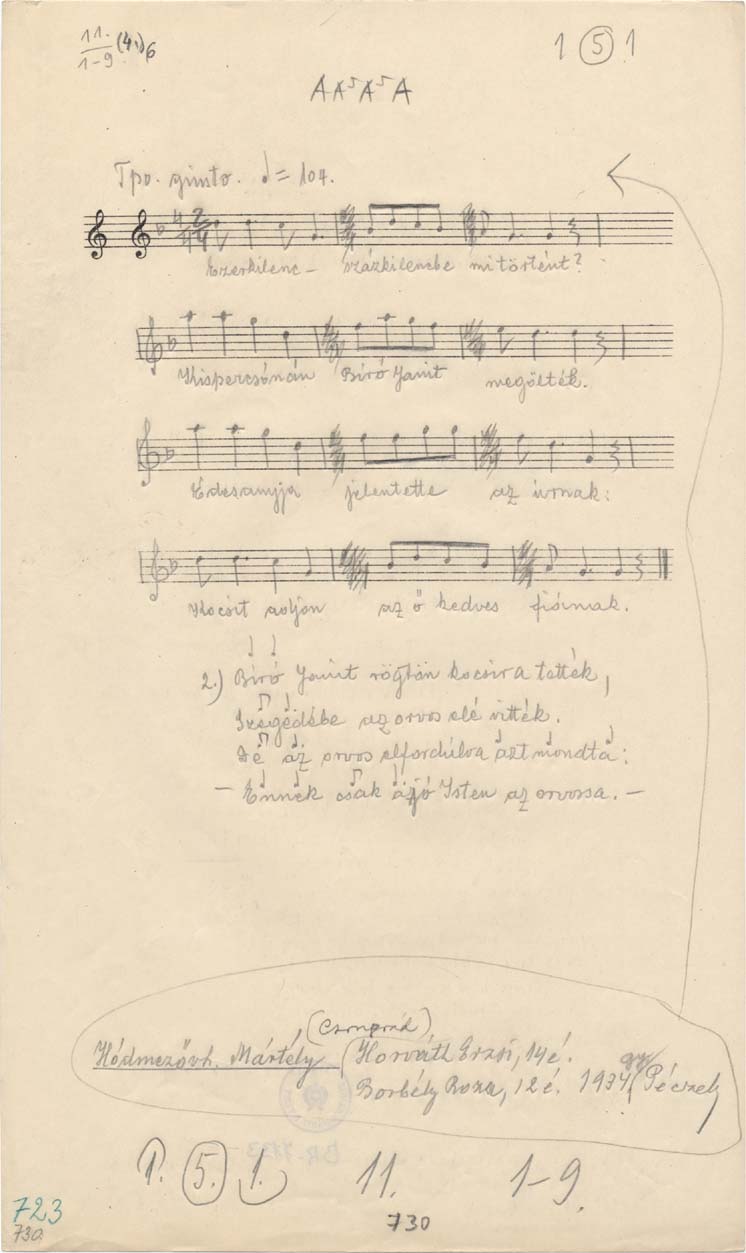 11. (4.) 6
1-9
1 5 1
A A⁵ A⁵ A
Tpo. giusto. ♩= 104.
4 2
4 4
Ezerkilenc - százkilencbe mi történt?
Kispercsónán Bíró Jánit megölték.
Édesanyja jelentette az úrnak:
Kocsit adjon az ő kedves fiának.
2.) Bíró Jánit rögtön kocsira tették,
Szegedébe az orvos elé vitték.
De az orvos elfordúlva azt mondta:
- Ennek csak a jó Isten az orvossa. -
(Csongrád)
Hódmezővh. Mártély (Horváth Erzsi, 14 é.
Borbély Roza, 12 é. 1934, (Péczely
1. 5. 1. 11. 1-9.
723
730.
730